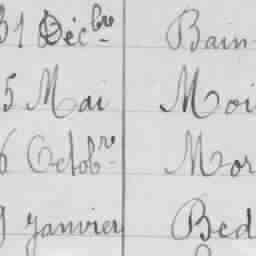 31 Décbre Bain
5 Mai Moi
6 Octobre Mor
9 Janvier Bed